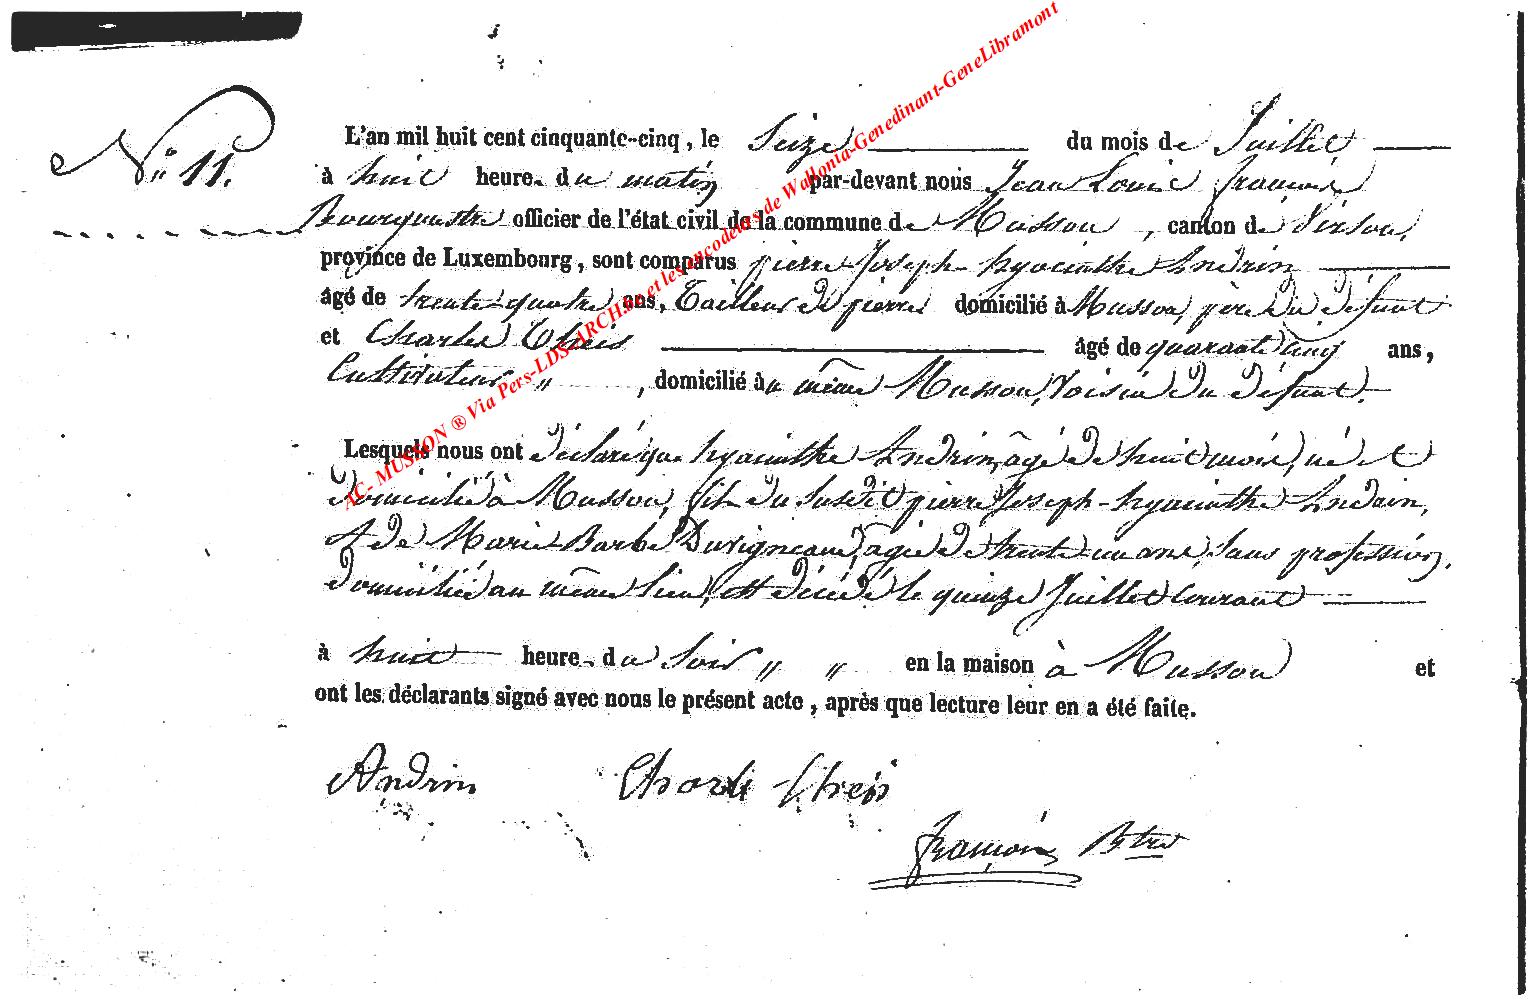 N° 11.
L'an mil huit cent cinquante-cinq, le Seize du mois de Juillet
à huit heure du matin par-devant nous Jean Louis françois
Bourgmestre officier de l'état civil de la commune de Musson, canton de Virton,
province de Luxembourg, sont comparus pierre Joseph hyacinthe Andrin
âgé de trente-quatre ans, Tailleur de pierre domicilié à Musson, père du défunt
et Charles Theis âgé de quarante cinq ans,
Cultivateur " , domicilié au même Musson, Voisin du défunt.
Lesquels nous ont déclaré que hyacinthe Andrin, âgé de huit mois, né et
domicilié à Musson, fils du susdit pierre Joseph-hyacinthe Andrin,
& de Marie Barbe Duvigneaud, agée de trente un ans, sans profession,
domiciliée au même lieu, est décédé le quinze Juillet courant
à huit heure du soir " " en la maison à Musson et
ont les déclarants signé avec nous le présent acte, après que lecture leur en a été faite.
Andrin Charle Theis
françois Btre
AC- MUSSON ® Via Pers-LDS-ARCH.be et les encodeurs de Wallonia-Genedinant-GeneLibramont